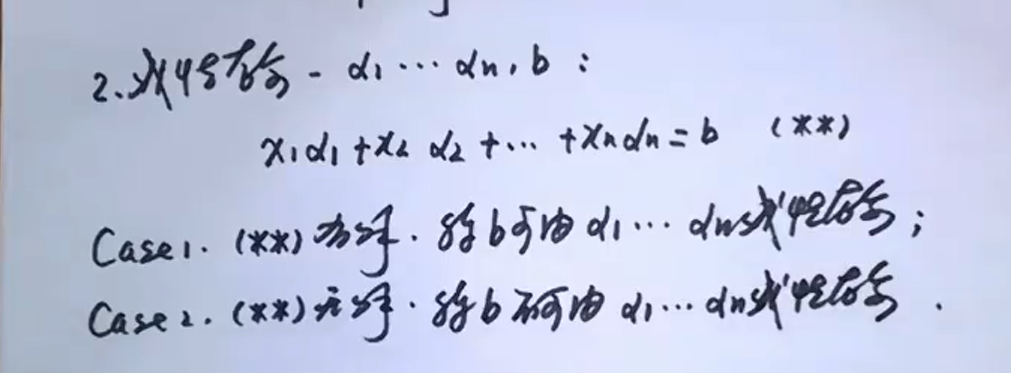 2. 线性表示 - α₁ ⋯ αn, b :
x₁α₁ + x₂α₂ + ⋯ + xnαn = b (**)
Case 1. (**) 有解. 称 b 可由 α₁ ⋯ αn 线性表示 ;
Case 2. (**) 无解. 称 b 不可由 α₁ ⋯ αn 线性表示 .